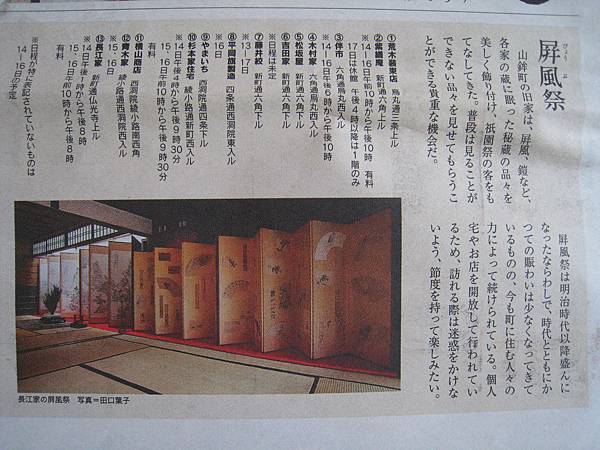 屏風祭
びょうぶ
山鉾町の旧家は、屏風、鎧など、
各家の蔵に眠った秘蔵の品々を
美しく飾り付け、祇園祭の客をも
てなしてきた。普段は見ることが
できない品々を見せてもらうこ
とができる貴重な機会だ。
屏風祭は明治時代以降盛んに
なったならわしで、時代とともにか
つての賑わいは少なくなってきて
いるものの、今も町に住む人々の
力によって続けられている。個人
宅やお店を開放して行われてい
るため、訪れる際は迷惑をかけな
いよう、節度を持って楽しみたい。
①荒木装束店 烏丸通三条上ル
②紫織庵 新町通六角上ル
14〜16日午前10時から午後10時 有料
17日は休館 午後4時以降は1階のみ
③伴市 六角通烏丸西入ル
14〜16日午後6時から午後10時
④木村家 六角通烏丸西入ル
⑤松坂屋 新町通六角下ル
⑥吉田家 新町通六角下ル
※日程は未定
⑦藤井絞 新町通六角下ル
※13〜17日
⑧平岡旗製造 四条通西洞院東入ル
※16日
⑨やまいち 西洞院通四条下ル
14日午後4時から午後9時30分
⑩杉本家住宅 綾小路通新町西入ル
14日午後1時から午後9時30分
15、16日午前10時から午後9時30分
有料
⑪横山商店 西洞院綾小路南西角
⑫青木家 綾小路通西洞院西入ル
※15、16日
⑬長江家 新町通仏光寺上ル
14日午後1時から午後8時
15、16日午前10時から午後8時
有料
※日程が特に表記されていないものは
14〜16日の予定
長江家の屏風祭 写真＝田口葉子